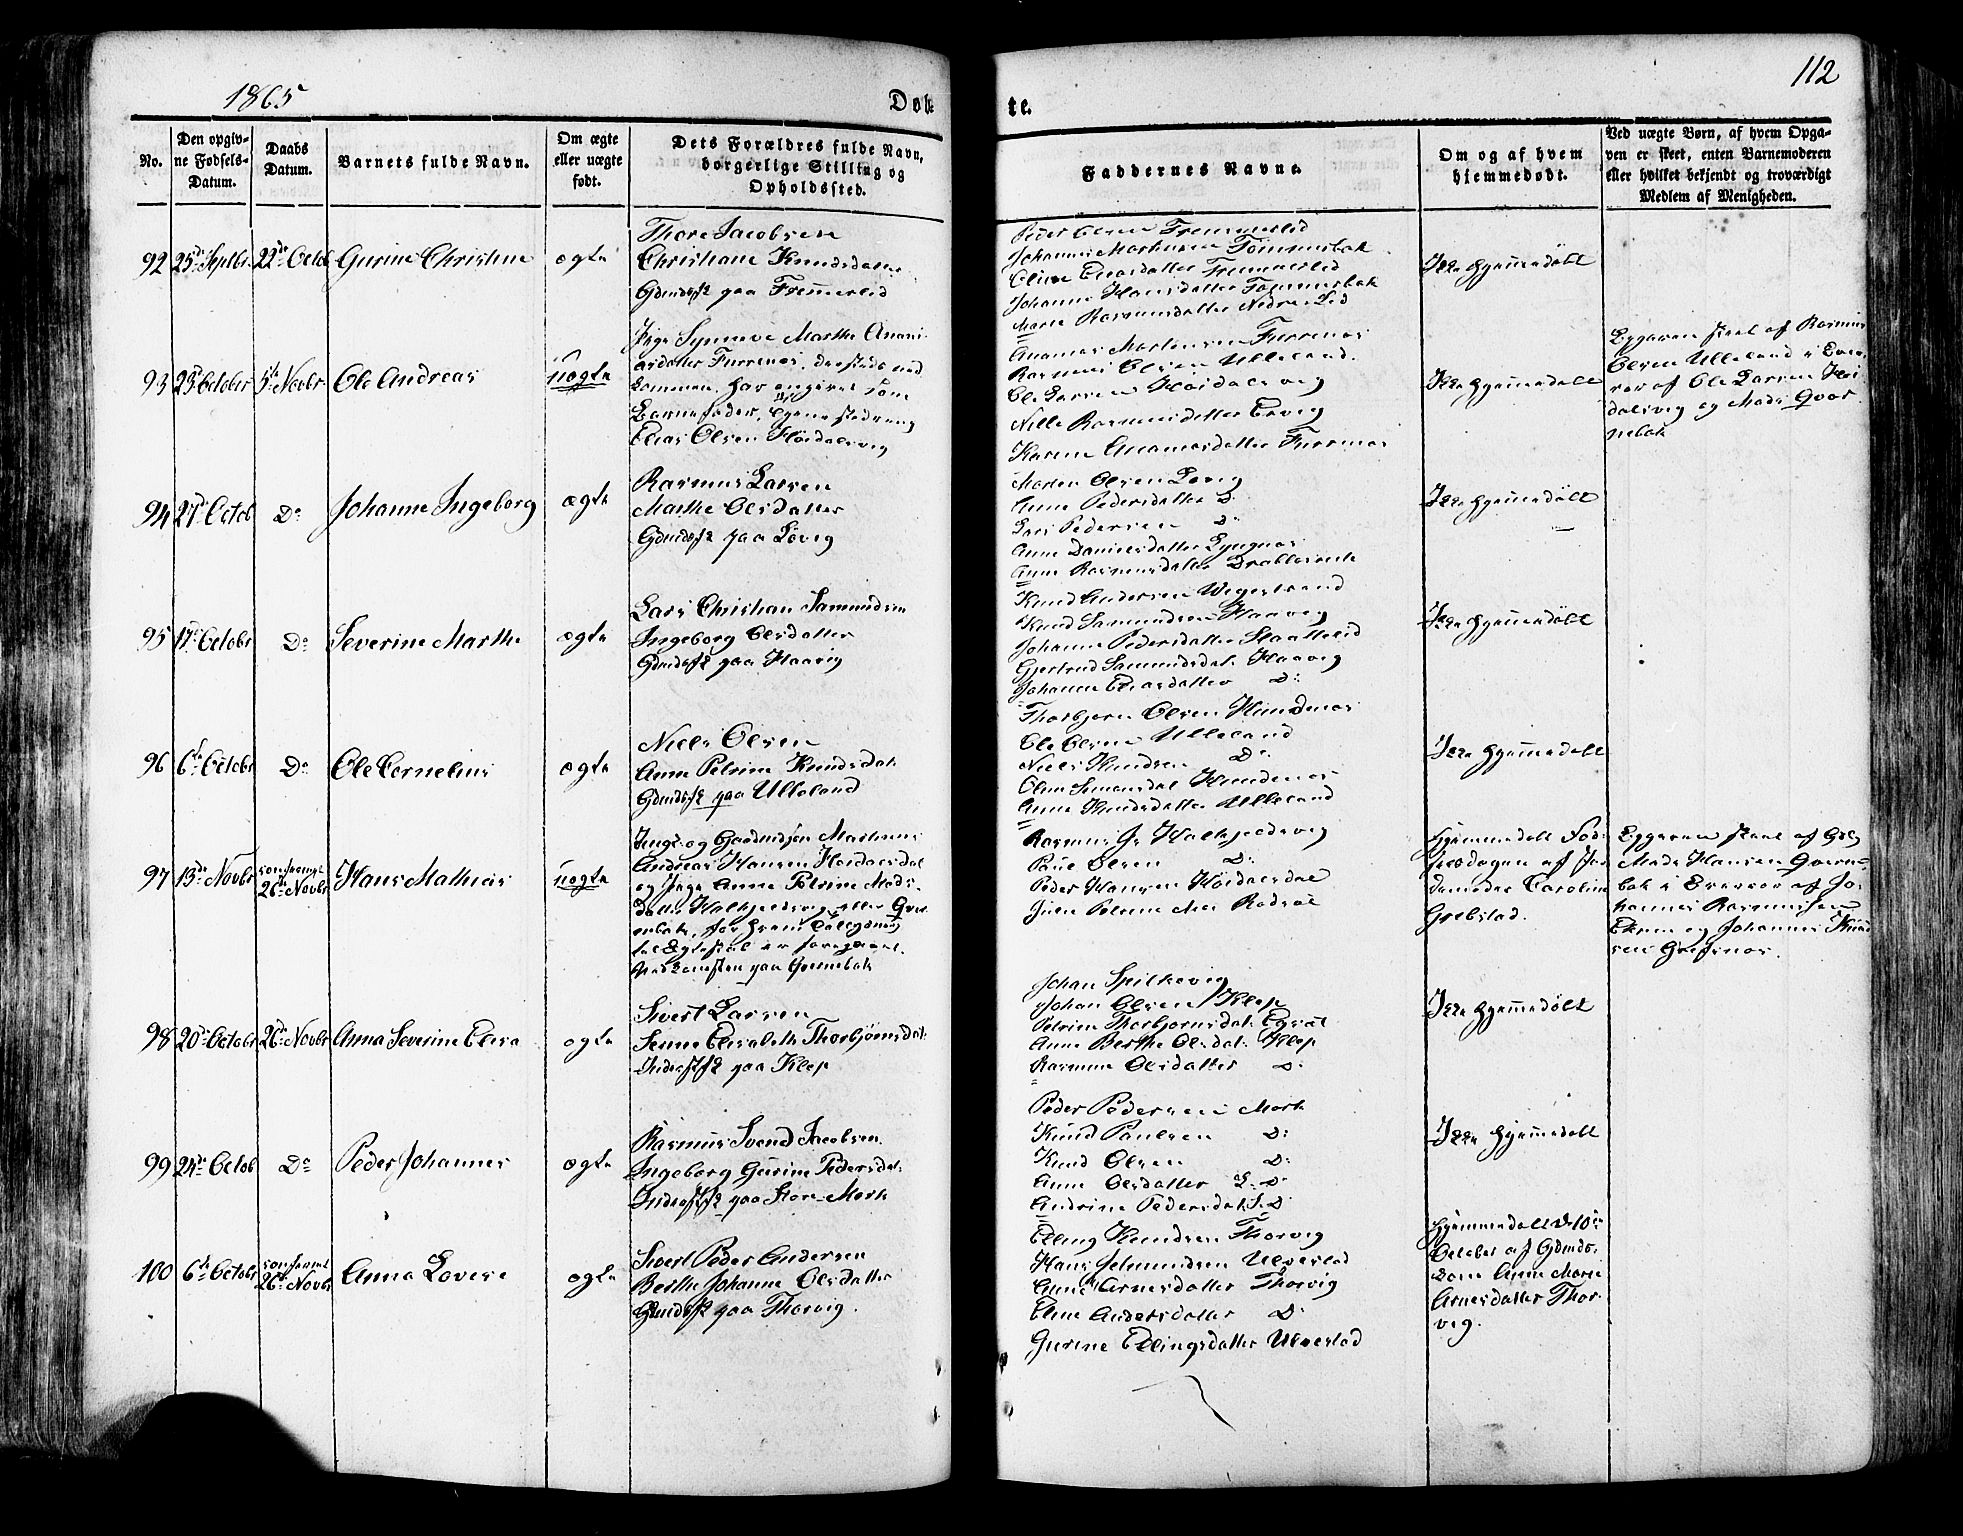 1865
Døb
te.
112
No.
Den opgiv-
ne Fødsels-
Datum.
Daabs
Datum.
Barnets fulde Navn.
Om ægte
eller uægte
født.
Dets Forældres fulde Navn,
borgerlige Stilling og
Opholdssted.
Faddernes Navne.
Om og af hvem
hjemmedøbt.
Ved uægte Børn, af hvem Opga-
ven er skeet, enten Barnemoderen
eller hvilket bekjendt og troværdigt
Medlem af Menigheden.
92 25de Septbr 22de Octob Gurine Christine ægte
Thore Jacobsen
Christiane Knudsdatter
Gdmdsfk paa Fremmerlid
Peder Olsen Fremmerlid
Johannes Martinsen Tømmerbak
Oline Eliasdatter Fremmerlid
Johanne Hansdatter Tømmerbak
Marte Rasmusdatter Nedre Lid
Ikke hjemmedøbt
93 23de October 5te Novbr Ole Andreas uægte
Pige Synneve Marthe Anani-
asdatter Furrenes,
kommen, har angivet som
Barnefader,
Elias Olsen Høidalsvig
Ananias Mortensen Furrenes
Rasmus Olsen Ulleland.
Ole Larsen Høidalsvig
Nille Rasmusdatter Løvig
Karen Ananiasdatter Furrenes
Ikke hjemmedøbt
Opgaven skeet af Rasmus
Olsen Ulleland i Over-
vær af Ole Larsen Høi-
dalsvig og Mads Qvar-
nebak
94 27de Octob Do Johanne Ingeborg ægte
Rasmus Larsen
Marthe Olsdatter
Gdmdsfk paa Løvig
Morten Olsen Løvig
Anne Pedersdatter D:
Lars Pedersen D:
Anne Danielsdatter Lyngnes
Anne Rasmusdatter
Ikke hjemmedøbt
95 17de Octobr Do Severine Marthe ægte
Lars Christian Samundsen
Ingeborg Olsdatter
Gdmdsfk paa Haavig
Knud Andersen Wigestrand
Knud Samundsen Haavig
Johanne Pedersdatter
Gjertrud Samundsdat. Haavig
Johanne Eliasdatter D:
Ikke hjemmedøbt
96 6te Octobr Do Ole Cornelius ægte
Niels Olsen
Anne Petrine Knudsdat
Gdmdsfk paa Ulleland
Thorbjørn Olsen Hundenes
Ole Olsen Ulleland
Niels Knudsen D:
Oline Simonsdat Hundenes
Anne Knudsdatter Ulleland
Ikke hjemmedøbt
97 13de Novbr confirmeret
26de Novbr Hans Mathias uægte
Unge og Gaardmdsøn Martinus
Andreas Hansen Høidalsdal
og Pige Anne Petrine Mads-
datter Halkjeldsvig eller Qver-
nebak, for hvem
Rasmus Halkjeldsvig
Paul Olsen D:
Peder Hansen Høidalsdal
Julie Petrine Rødsæt
Hjemmedøbt Fød-
selsdagen af Jor-
demoder Caroline
Grebstad.
Opgaven skeet af Gbr
Mads Hansen Qverne-
bak i Overvær af Jo-
hannes Rasmussen
og Johannes Knud-
sen Grebsnes.
98 20de Octobr 26de Novbr Anna Severine Elisa ægte
Sivert Larsen
Senne Elisabeth Thorbjørnsdat.
Indrstfk paa Klep
Johan Spilkevig
Johan Olsen Klep
Petrine Thorbjørnsdat.
Anne Berthe Olsdat. Klep
Rasmine Olsdatter D:
Ikke hjemmedøbt
99 24de Octob Do Peder Johannes ægte
Rasmus Svend Jacobsen
Ingeborg Gurine Pedersdat.
Indrstfk paa Store Mork
Peder Pedersen Mork
Knud Paulsen D:
Knud Olsen D:
Anne Olsdatter L. D:
Andrine Pedersdat. S. D:
Ikke hjemmedøbt
100 6te Octobr confirmeret
26de Novbr Anna Lovise ægte
Sivert Peder Andersen
Berthe Johanne Olsdatter
Gdmdsfk paa Thorvig.
Elling Knudsen Thorvig
Hans Ulvestad
Anne Arnesdatter Thorvig
Eline Andersdatter D:
Gurine Ellingsdatter Ulvestad
Hjemmedøbt d. 10de
October af Gdmds-
kone Anne Marie
Arnesdatter Thor-
vig.